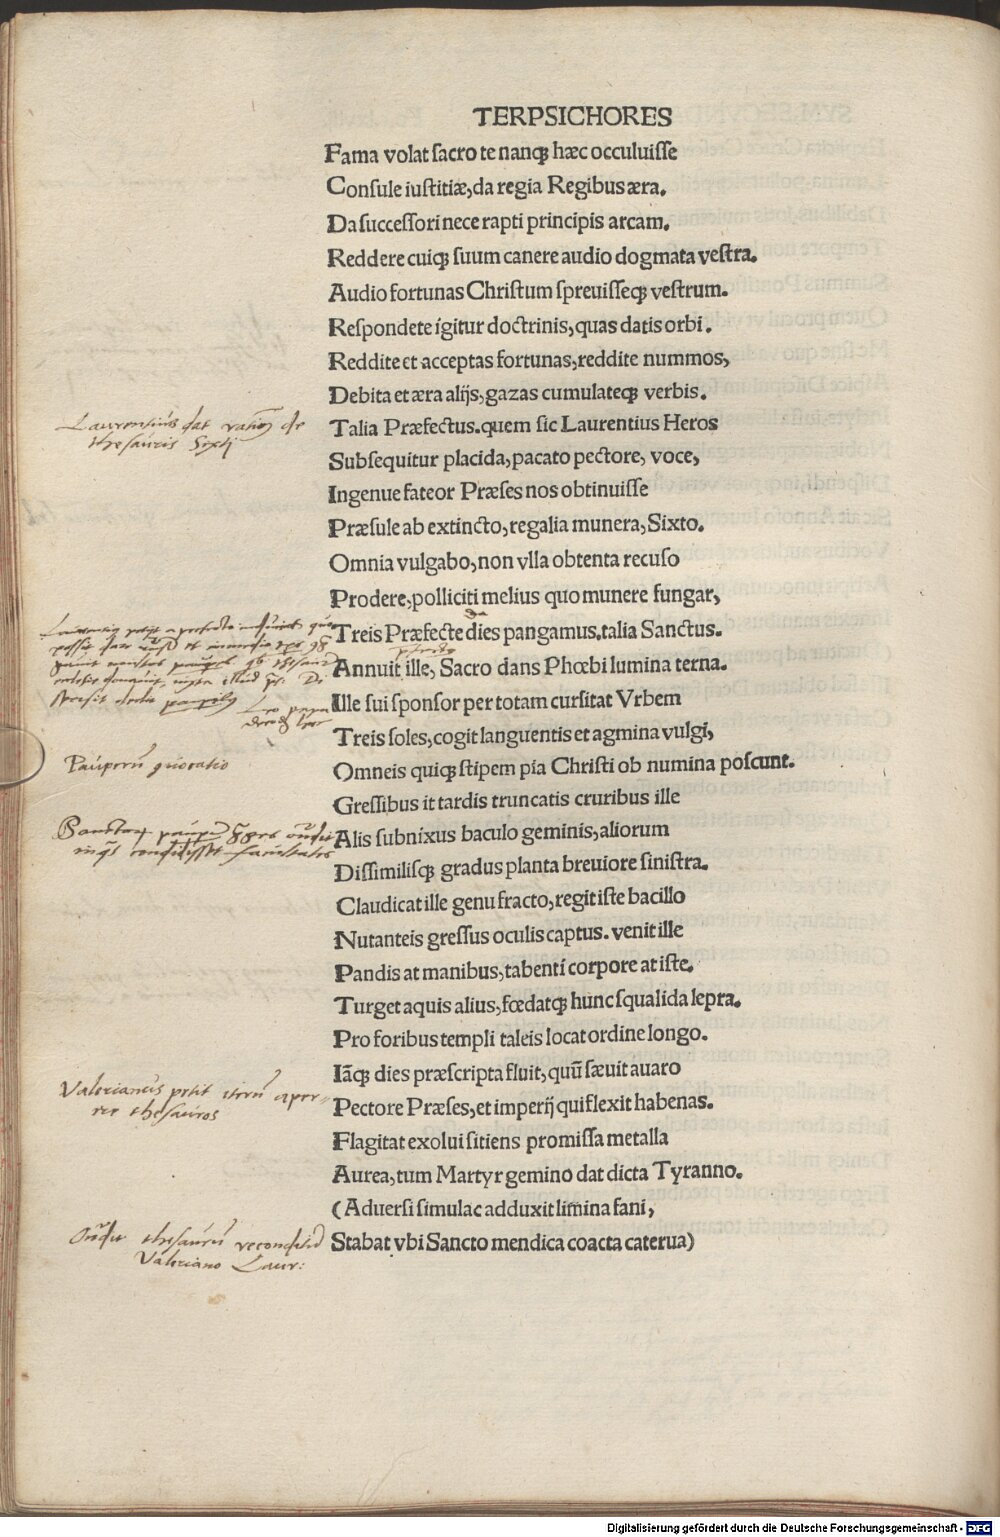 TERPSICHORES
Fama volat sacro te nanqꝫ hæc occuluisse
Consule iustitiæ, da regia Regibus æra.
Da successori nece rapti principis arcam.
Reddere cuiqꝫ suum canere audio dogmata vestra.
Audio fortunas Christum spreuisseqꝫ vestrum.
Respondete igitur doctrinis, quas datis orbi.
Reddite et acceptas fortunas, reddite nummos,
Debita et æra alijs, gazas cumulateqꝫ verbis.
Laurentius dat rationẽ de
thesauris Sexti
Talia Præfectus. quem sic Laurentius Heros
Subsequitur placida, pacato pectore, voce,
Ingenue fateor Præses nos obtinuisse
Præsule ab extincto, regalia munera, Sixto.
Omnia vulgabo, non vlla obtenta recuso
Prodere, polliciti melius quo munere fungar,
da
Treis Præfecte dies pangamus. talia Sanctus.
Annuit ille, Sacro dans Phœbi lumina terna.
Ille sui sponsor per totam cursitat Vrbem
Treis soles, cogit languentis et agmina vulgi,
Pauperũ
Omneis quiqꝫ stipem pia Christi ob numina poscunt.
Gressibus it tardis truncatis cruribus ille
Alis subnixus baculo geminis, aliorum
Dissimilisqꝫ gradus planta breuiore sinistra.
Claudicat ille genu fracto, regit iste bacillo
Nutanteis gressus oculis captus. venit ille
Pandis at manibus, tabenti corpore at iste.
Turget aquis alius, fœdatqꝫ hunc squalida lepra.
Pro foribus templi taleis locat ordine longo.
Iãqꝫ dies præscripta fluit, quũ sæuit auaro
Valerianus petit iterũ aper-
rire thesauros
Pectore Præses, et imperij qui flexit habenas.
Flagitat exolui sitiens promissa metalla
Aurea, tum Martyr gemino dat dicta Tyranno.
(Aduersi simulac adduxit limina fani,
thesaurũ
Valeriano Laur:
Stabat vbi Sancto mendica coacta caterua)
Digitalisierung gefördert durch die Deutsche Forschungsgemeinschaft - DFG